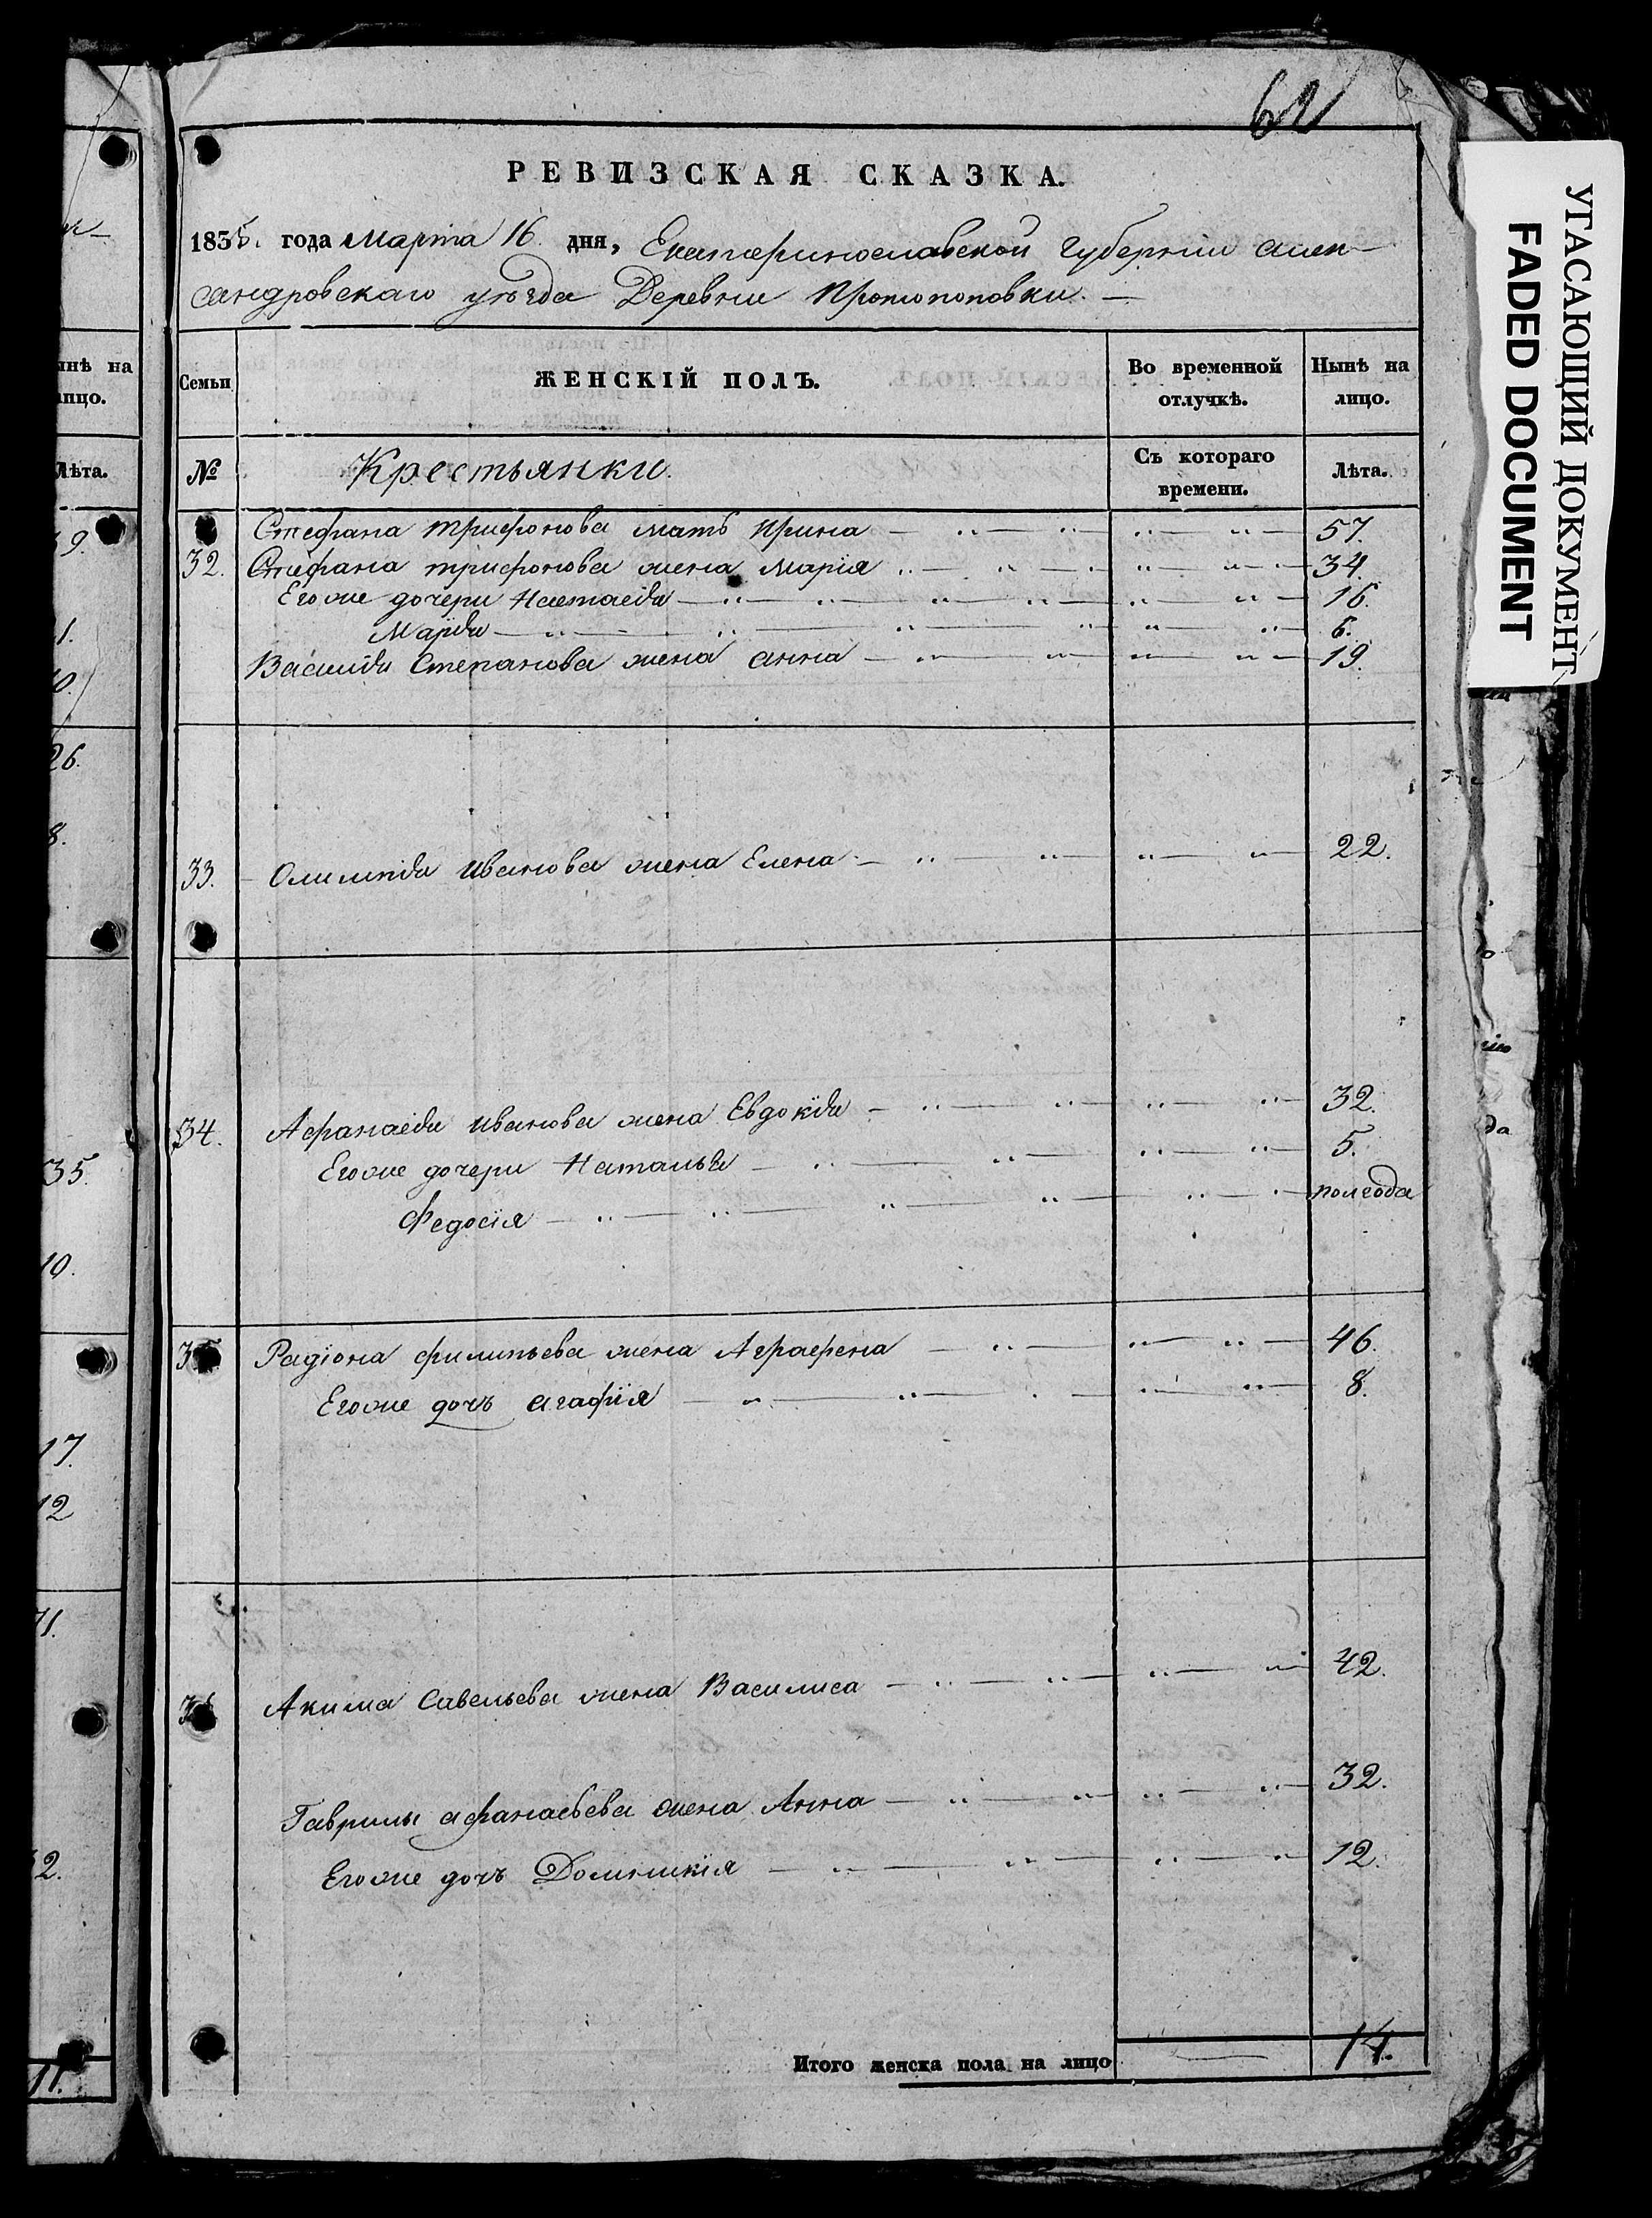 62
РЕВИЗСКАЯ СКАЗКА.
1835. года Марта 16. дня, Екатеринославской Губернии Алек-
сандровскаго уѣзда Деревни Протопоповки. —
Семьи
ЖЕНСКІЙ ПОЛЪ.
Во временной отлучкѣ.
Нынѣ на лицо.
№
Крестьянки.
Съ котораго времени.
Лѣта.
Стефана Трифонова мать Ирина 57.
32. Стефана трифонова жена Марія 34.
Егоже дочери Настасія 16.
Марія 6.
Василія Степанова жена анна 19.
33. Олимпія Иванова жена Елена 22.
34. Афанасія Иванова жена Евдокія 32.
Егоже дочери Наталья 5.
Федосія полгода
35 Радіона филипьева жена Аграфена 46.
Егоже дочь агафія 8.
36 Акима Савельева жена Василиса 42.
Гаврилы афанасьева жена Анна 32.
Егоже дочь Домникія 12.
Итого женска пола на лицо 14.
УГАСАЮЩИЙ ДОКУМЕНТ
FADED DOCUMENT
лѣта.
9.
1.
10.
26.
8.
35.
10.
17.
12
71.
2.
11.